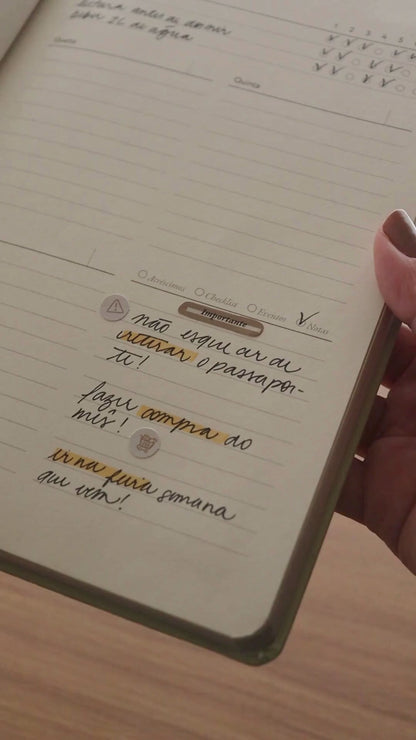 leitura antes de dormir
beber 2L de água
1 2 3 4 5
Quarta
Quinta
Acréscimos Checklist Eventos Notas
Importante
não esquecer de
retirar o passapor-
te!
fazer compra do
mês!
ir na feira semana
que vem!